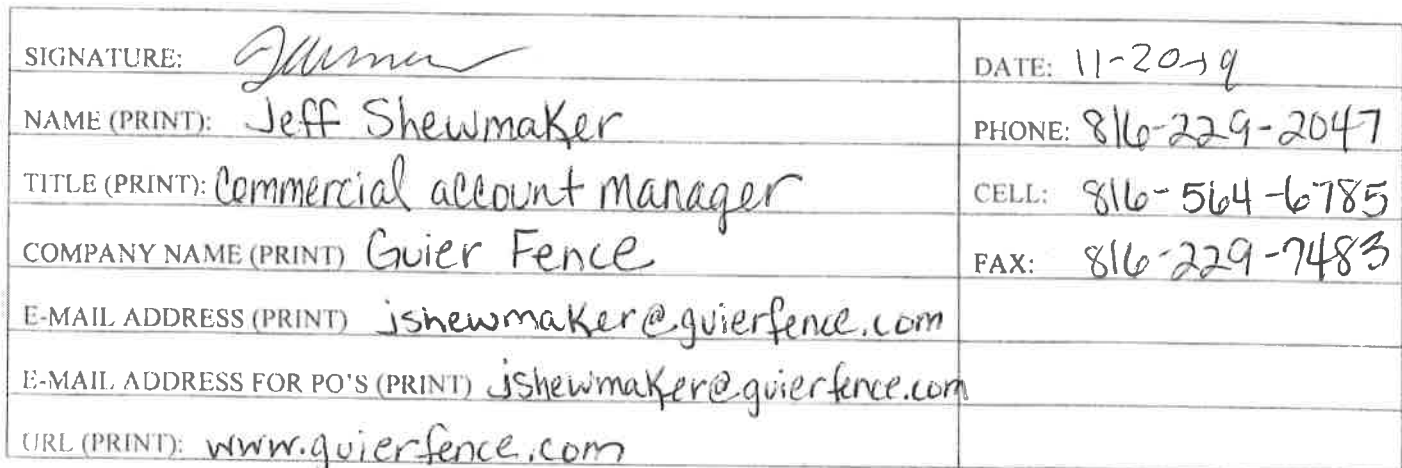 SIGNATURE:
DATE: 11-20-19
NAME (PRINT): Jeff Shewmaker
PHONE: 816-229-2047
TITLE (PRINT): Commercial account manager
CELL: 816-564-6785
COMPANY NAME (PRINT) Guier Fence
FAX: 816-229-7483
E-MAIL ADDRESS (PRINT) jshewmaker@guierfence.com
E-MAIL ADDRESS FOR PO'S (PRINT) jshewmaker@guierfence.com
URL (PRINT): www.guierfence.com